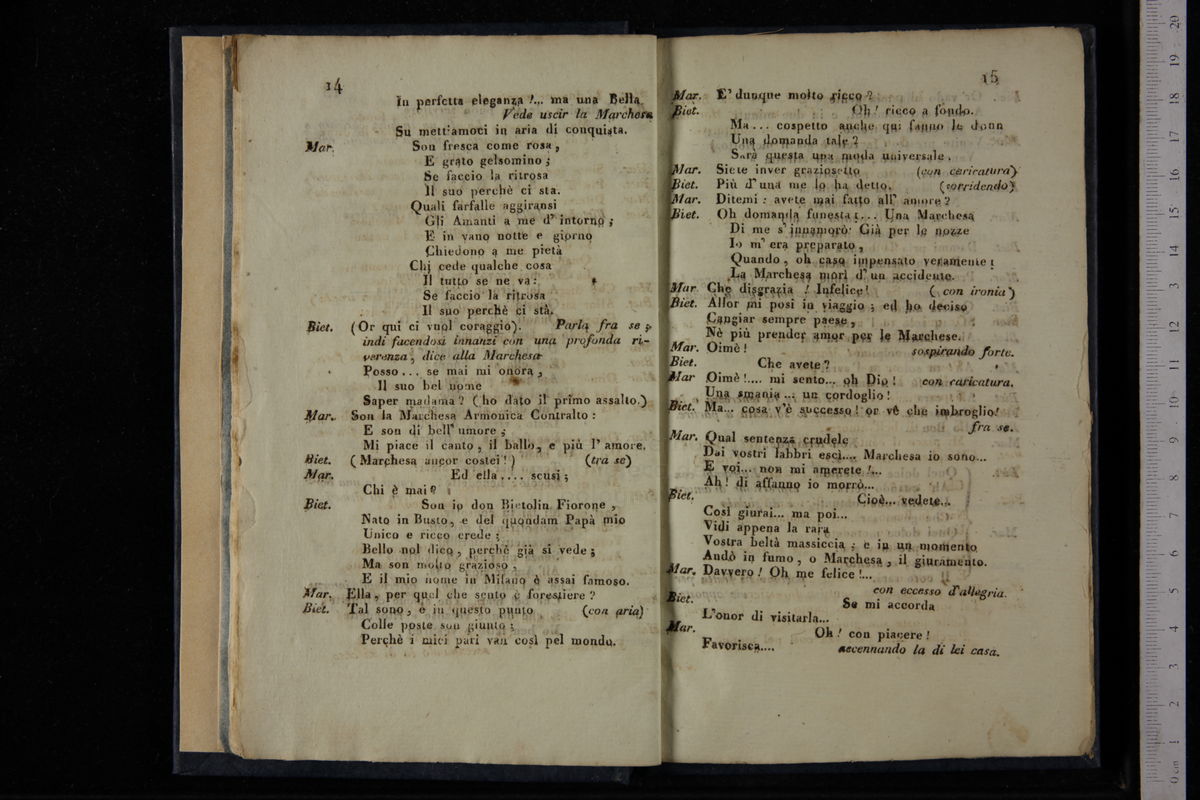 14
In perfetta eleganza !... ma una Bella
Vede uscir la Marchesa
Su mettiamoci in aria di conquista.
Mar. Son fresca come rosa,
E grato gelsomino;
Se faccio la ritrosa
Il suo perchè ci sta.
Quali farfalle aggiransi
Gli Amanti a me d' intorno;
E in vano notte e giorno
Chiedono a me pietà
Chi cede qualche cosa
Il tutto se ne va:
Se faccio la ritrosa
Il suo perchè ci stà.
Biet. (Or qui ci vuol coraggio). Parla fra se;
indi facendosi innanzi con una profonda ri-
verenza, dice alla Marchesa
Posso... se mai mi onora,
Il suo bel nome
Saper madama? (ho dato il primo assalto.)
Mar. Son la Marchesa Armonica Contralto:
E son di bell' umore;
Mi piace il canto, il ballo, e più l' amore.
Biet. (Marchesa ancor costei!) (tra se)
Mar. Ed ella.... scusi;
Chi è mai?
Biet. Son io don Bietolin Fiorone,
Nato in Busto, e del quondam Papà mio
Unico e ricco erede;
Bello nol dico, perchè già si vede;
Ma son molto grazioso,
E il mio nome in Milano è assai famoso.
Mar. Ella, per quel che sento è forestiere?
Biet. Tal sono, e in questo punto (con aria)
Colle poste son giunto;
Perchè i miei pari van così pel mondo.
15
Mar. E' dunque molto ricco?
Biet. Oh! ricco a fondo.
Ma... cospetto anche qui fanno le donn
Una domanda tale?
Sarà questa una moda universale.
Mar. Siete inver graziosetto (con caricatura)
Biet. Più d' una me lo ha detto. (sorridendo)
Mar. Ditemi: avete mai fatto all' amore?
Biet. Oh domanda funesta!... Una Marchesa
Di me s' innamorò: Già per le nozze
Io m' era preparato,
Quando, oh caso impensato veramente!
La Marchesa morì d' un accidente.
Mar. Che disgrazia! Infelice! (con ironia)
Biet. Allor mi posi in viaggio; ed ho deciso
Cangiar sempre paese,
Nè più prender amor per le Marchese.
Mar. Oimè! sospirando forte.
Biet. Che avete?
Mar Oimè!.... mi sento... oh Dio! con caricatura.
Una smania... un cordoglio!
Biet. Ma... cosa v'è successo! or vè che imbroglio!
fra se.
Mar. Qual sentenza crudele
Dai vostri labbri escì.... Marchesa io sono...
E voi... non mi amerete!...
Ah! di affanno io morrò...
Biet. Cioè... vedete...
Così giurai... ma poi...
Vidi appena la rara
Vostra beltà massiccia; e in un momento
Andò in fumo, o Marchesa, il giuramento.
Mar. Davvero! Oh me felice!...
con eccesso d'allegria.
Biet. Se mi accorda
L'onor di visitarla...
Mar. Oh! con piacere!
Favorisca.... accennando la di lei casa.